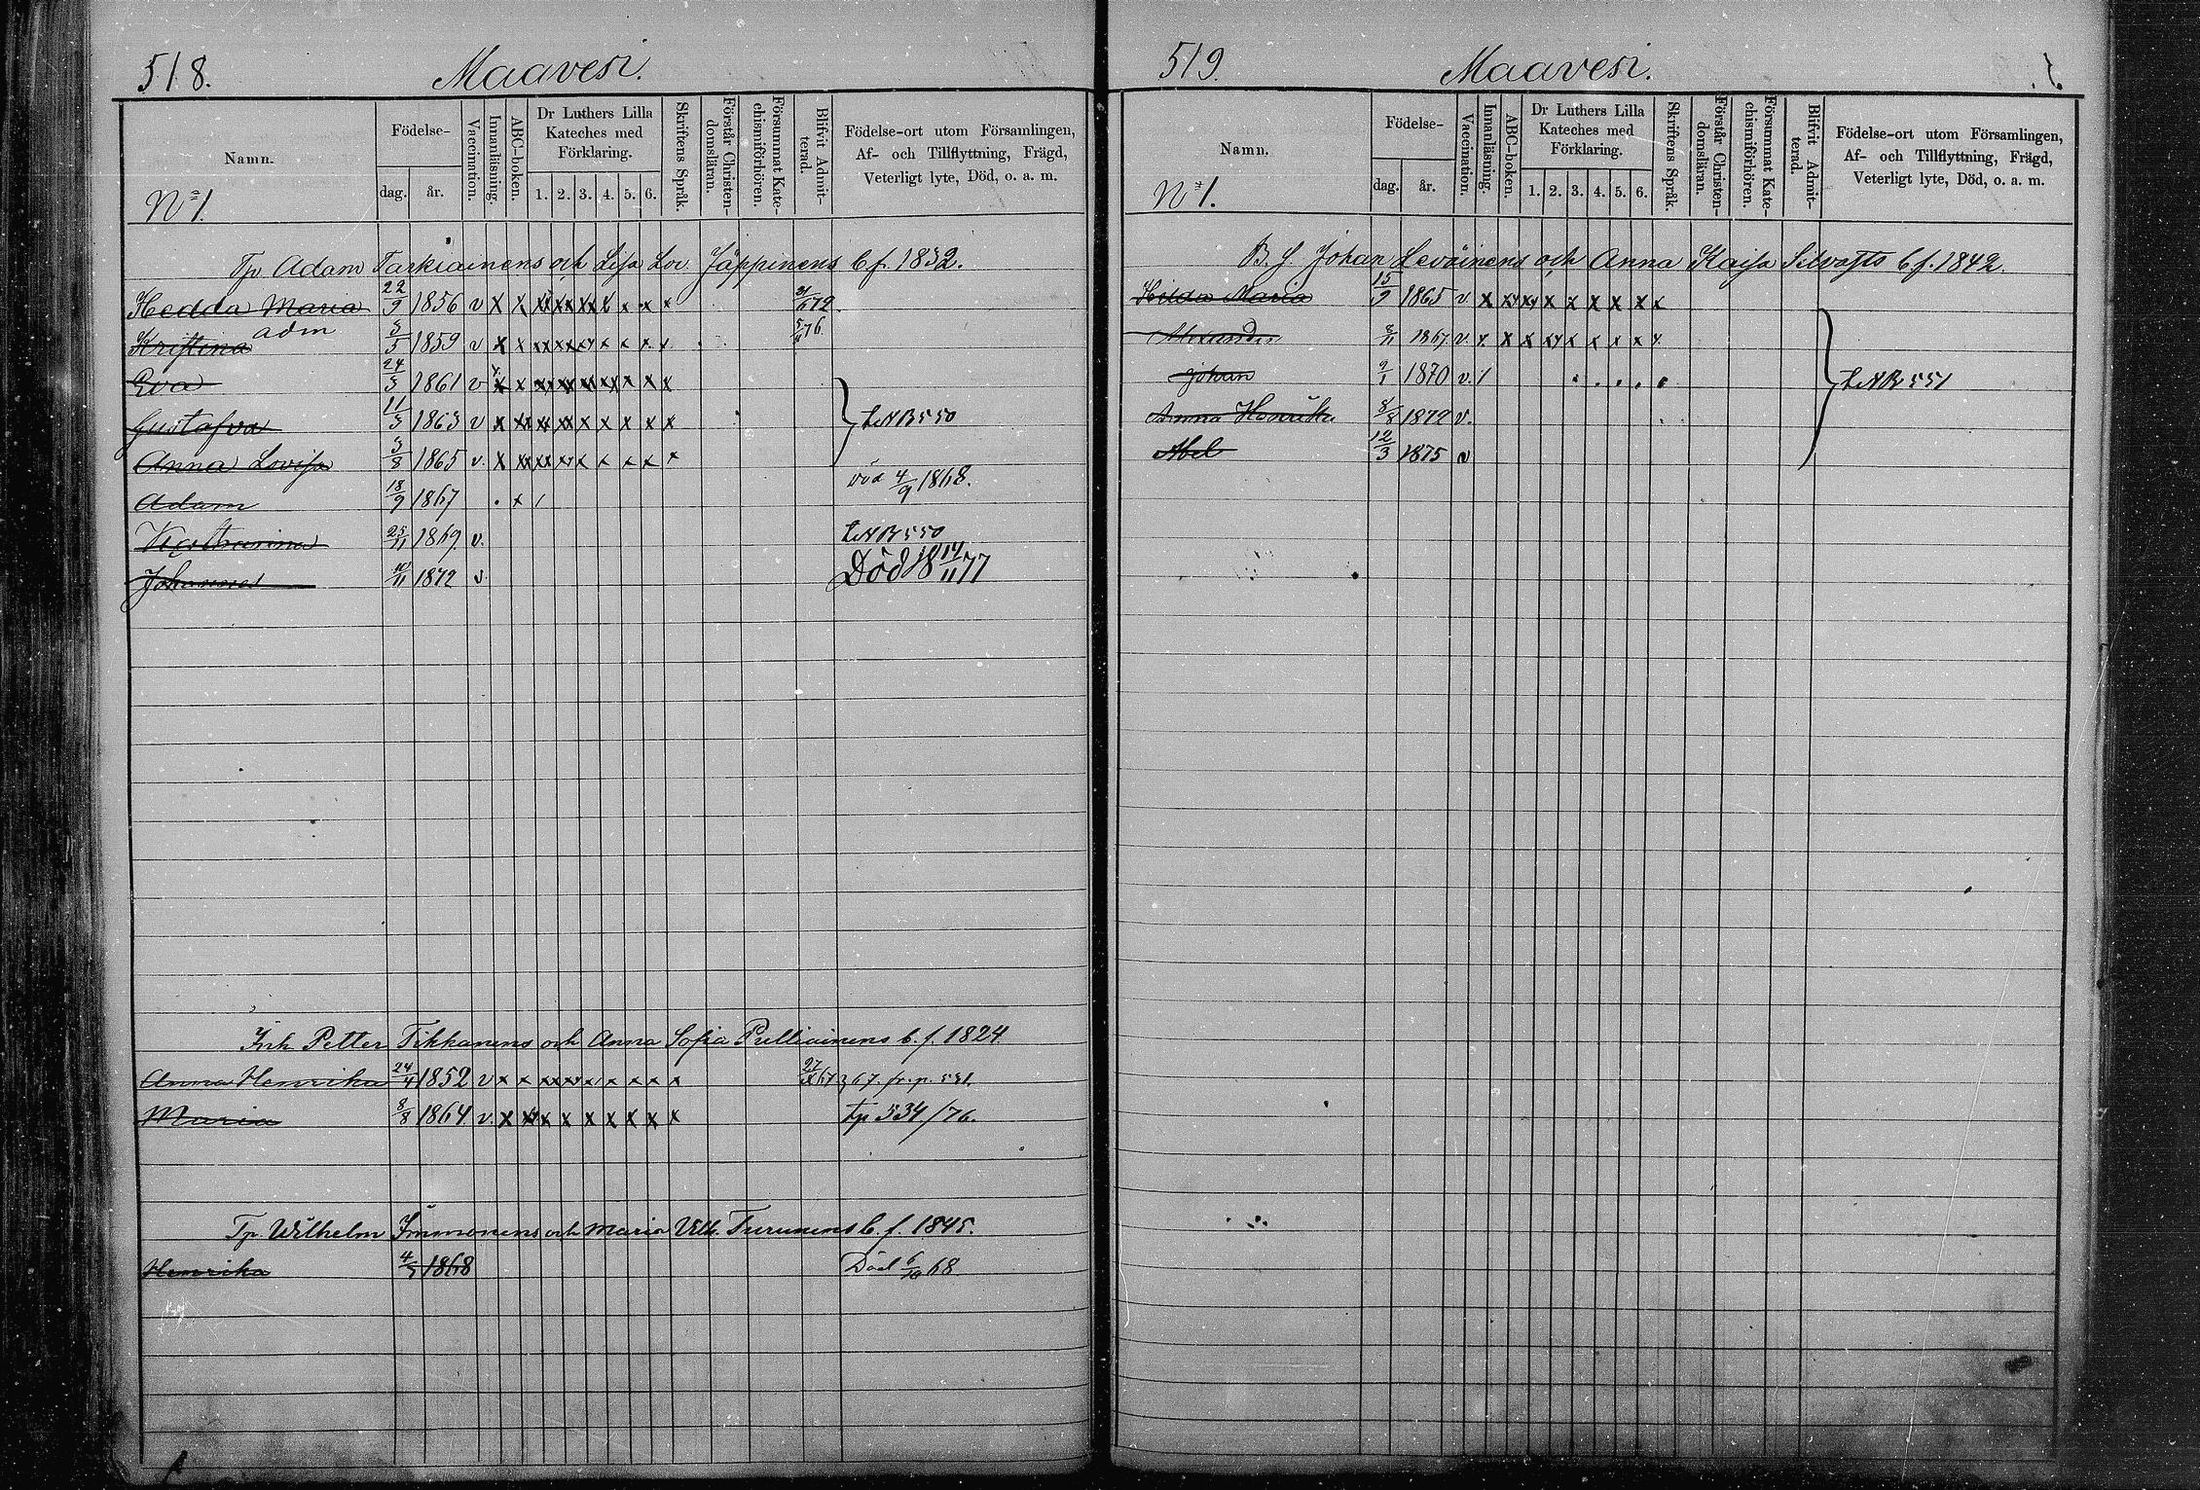 518.
Maavesi.
Namn.
Nº 1.
Födelse-
dag.
år.
Vaccination.
Innanläsning.
ABC-boken.
Dr Luthers Lilla
Kateches med
Förklaring.
1. 2. 3. 4. 5. 6.
Skriftens Språk.
Förstår Christen-
domsläran.
Försummat Kate-
chismiförhören.
Blifvit Admit-
terad.
Födelse-ort utom Församlingen,
Af- och Tillflyttning, Frägd,
Veterligt lyte, Död, o. a. m.
Tp Adam Tarkiainens och Lisa Lov. Jäppinens b.f. 1832.
Hedda Maria 22/9 1856 v x x xx xx xx x x x x 72
adm
Kristina 5/5 1859 v x x xx xx xy x x x x 76.
Eva 24/3 1861 v x x xx xx xx xx x x x
Gustafva 11/3 1863 v x xx xx xx x x x x x L.N.B 550
Anna Lovisa 3/8 1865 v. x xx xx x x x x x x
Adam 18/9 1867 . x / död 4/9 1868.
1869 v. L.N.B 550
Johannes 10/11 1872 v Död 18 14/11 77
Inh Petter Tikkanens och Anna Sofia Pulliainens b.f. 1824
Anna Henrika 24/4 1852 v x x xx xx x x x x x 67 67. fr. p. 531.
Maria 8/8 1864 v. x xx x x x x x x x tp 534/76.
Tp. Wilhelm Immonens och Maria Vilh. Turunens b.f. 1845.
Henrika 1868 Död 6/10 68
519.
Maavesi.
Namn.
Nº 1.
Födelse-
dag.
år.
Vaccination.
Innanläsning.
ABC-boken.
Dr Luthers Lilla
Kateches med
Förklaring.
1. 2. 3. 4. 5. 6.
Skriftens Språk.
Förstår Christen-
domsläran.
Försummat Kate-
chismiförhören.
Blifvit Admit-
terad.
Födelse-ort utom Församlingen,
Af- och Tillflyttning, Frägd,
Veterligt lyte, Död, o. a. m.
B.f. Johan Leväinens och Anna Kaisa Silvasts b.f. 1842.
Hilda Maria 15/9 1865 v. x xx xx x x x x x x
Alexander 8/11 1867 v. x x x xy x x x x x
Johan 9/1 1870 v. / L.N.B 551
Anna Henrika 8/8 1872 v.
Abel 12/3 1875 v